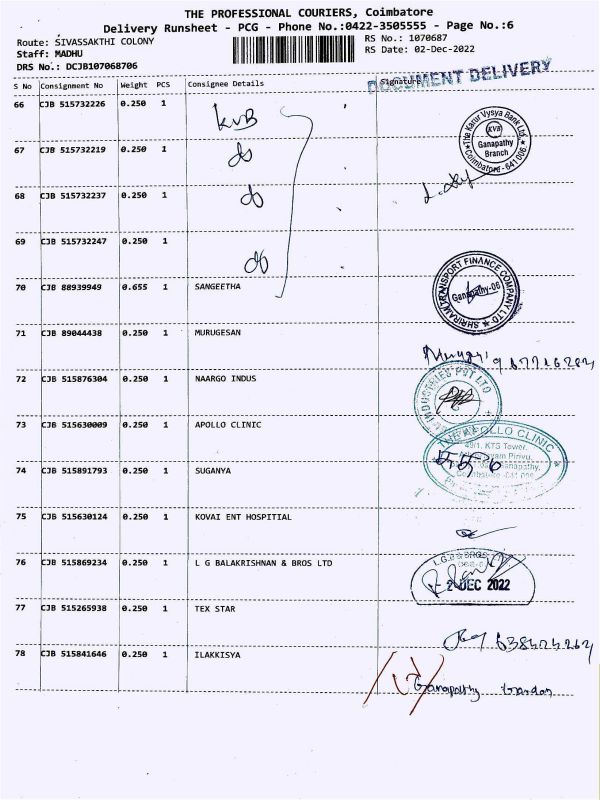 THE PROFESSIONAL COURIERS, Coimbatore
Delivery Runsheet - PCG - Phone No.:0422-3505555 - Page No.:6
Route: SIVASSAKTHI COLONY
RS No.: 1070687
Staff: MADHU
RS Date: 02-Dec-2022
DRS No.: DCJB107068706
DOCUMENT DELIVERY
S No Consignment No Weight PCS Consignee Details Signature
66 CJB 515732226 0.250 1 KVB
The Karur Vysya Bank Ltd.
KVB
Ganapathy
Branch
Coimbatore - 641 006.
67 CJB 515732219 0.250 1 do
68 CJB 515732237 0.250 1 do
69 CJB 515732247 0.250 1 do
70 CJB 88939949 0.655 1 SANGEETHA
SHRIRAM TRANSPORT FINANCE COMPANY LTD
Ganapathy-06
71 CJB 89044438 0.250 1 MURUGESAN
72 CJB 515876304 0.250 1 NAARGO INDUS
INDUSTRIES PVT LTD
73 CJB 515630009 0.250 1 APOLLO CLINIC
APOLLO CLINIC
KTS Tower,
Pirivu,
Ganapathy,
74 CJB 515891793 0.250 1 SUGANYA
75 CJB 515630124 0.250 1 KOVAI ENT HOSPITIAL
76 CJB 515869234 0.250 1 L G BALAKRISHNAN & BROS LTD
2 DEC 2022
77 CJB 515265938 0.250 1 TEX STAR
78 CJB 515841646 0.250 1 ILAKKISYA
Ganapathy Garden